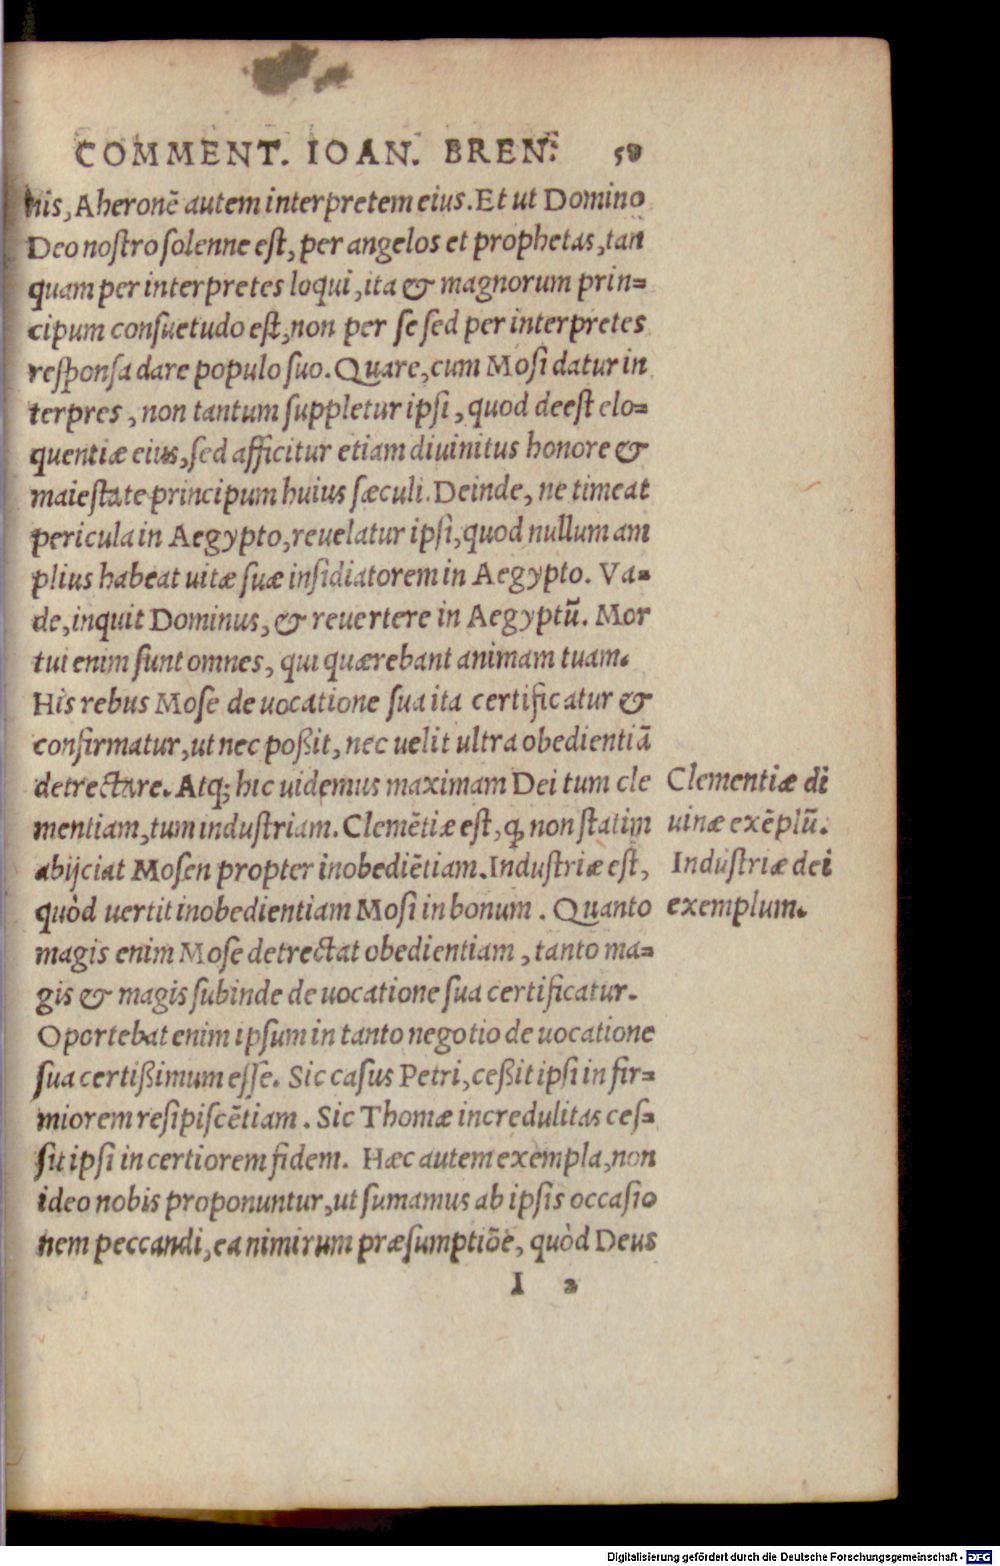 COMMENT. IOAN. BREN. 58
nis, Aheronē autem interpretem eius. Et ut Domino
Deo nostro solenne est, per angelos et prophetas, tan
quam per interpretes loqui, ita & magnorum prin=
cipum consuetudo est, non per se sed per interpretes
responsa dare populo suo. Quare, cum Mosi datur in
terpres, non tantum suppletur ipsi, quod deest elo=
quentiæ eius, sed afficitur etiam diuinitus honore &
maiestate principum huius sæculi. Deinde, ne timeat
pericula in Aegypto, reuelatur ipsi, quod nullum am
plius habeat uitæ suæ insidiatorem in Aegypto. Va=
de, inquit Dominus, & reuertere in Aegyptū. Mor
tui enim sunt omnes, qui quærebant animam tuam.
His rebus Mose de uocatione sua ita certificatur &
confirmatur, ut nec poßit, nec uelit ultra obedientiā
detrectare. Atq; hic uidemus maximam Dei tum cle
mentiam, tum industriam. Clemētiæ est, ꝙ non statim
abijciat Mosen propter inobediētiam. Industriæ est,
quòd uertit inobedientiam Mosi in bonum. Quanto
magis enim Mose detrectat obedientiam, tanto ma=
gis & magis subinde de uocatione sua certificatur.
Oportebat enim ipsum in tanto negotio de uocatione
sua certißimum esse. Sic casus Petri, ceßit ipsi in fir=
miorem resipiscētiam. Sic Thomæ incredulitas ces=
sit ipsi in certiorem fidem. Hæc autem exempla, non
ideo nobis proponuntur, ut sumamus ab ipsis occasio
nem peccandi, ea nimirum præsumptiōe, quòd Deus
I 2
Clementiæ di
uinæ exēplū.
Industriæ dei
exemplum.
Digitalisierung gefördert durch die Deutsche Forschungsgemeinschaft - DFG